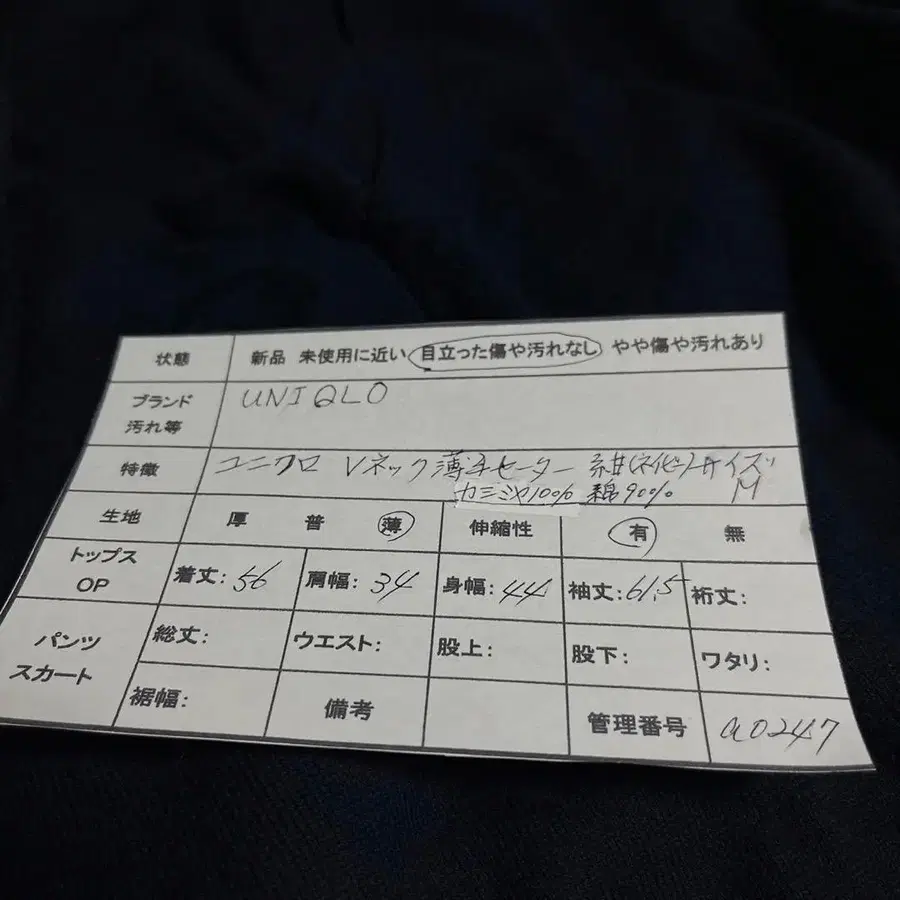 状態 新品 未使用に近い 目立った傷や汚れなし やや傷や汚れあり
ブランド UNIQLO
汚れ等
特徴 ユニクロ Vネック薄手セーター 紺(ネイビー)サイズ
カシミヤ10% 綿90% M
生地 厚 普 薄 伸縮性 有 無
トップス 着丈:56 肩幅:34 身幅:44 袖丈:61.5 裄丈:
OP
パンツ 総丈: ウエスト: 股上: 股下: ワタリ:
スカート
裾幅: 備考 管理番号 a0247